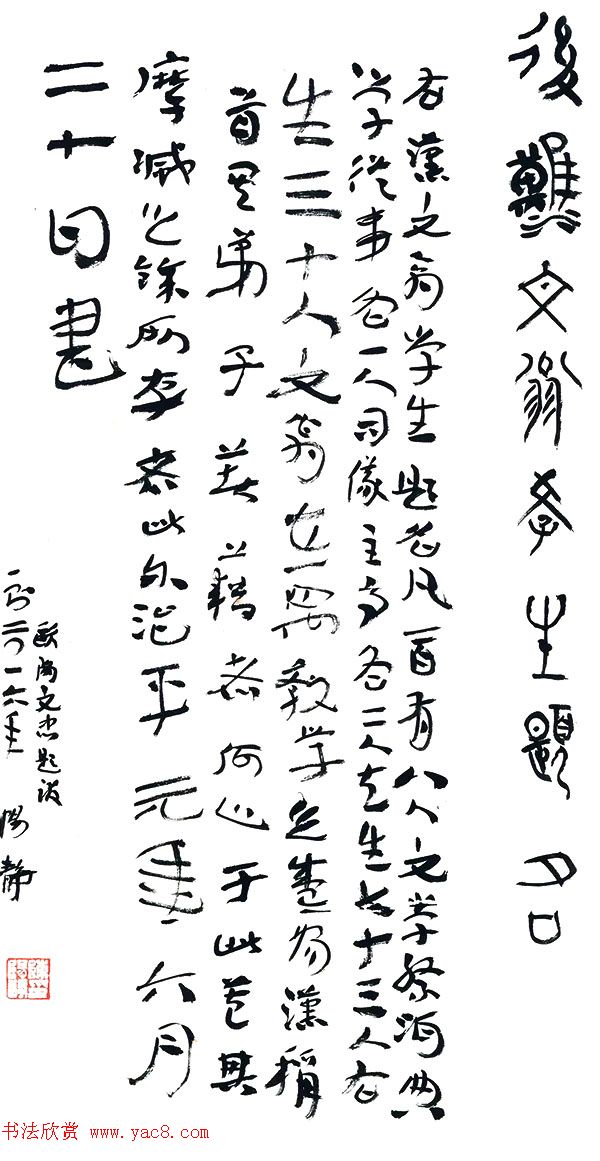 後漢文翁學生題名
右漢文翁学生題名凡一百有八人文学祭酒典
学從事各一人司儀主事各二人左生七十三人右
生三十人文翁在蜀教学之盛為漢稱
首其弟子著籍者何止于此蓋其
摩滅之餘所存者此尔治平元年六月
二十日書
歐陽文忠題跋
二〇一六年 陽静
书法欣赏 www.yac8.com